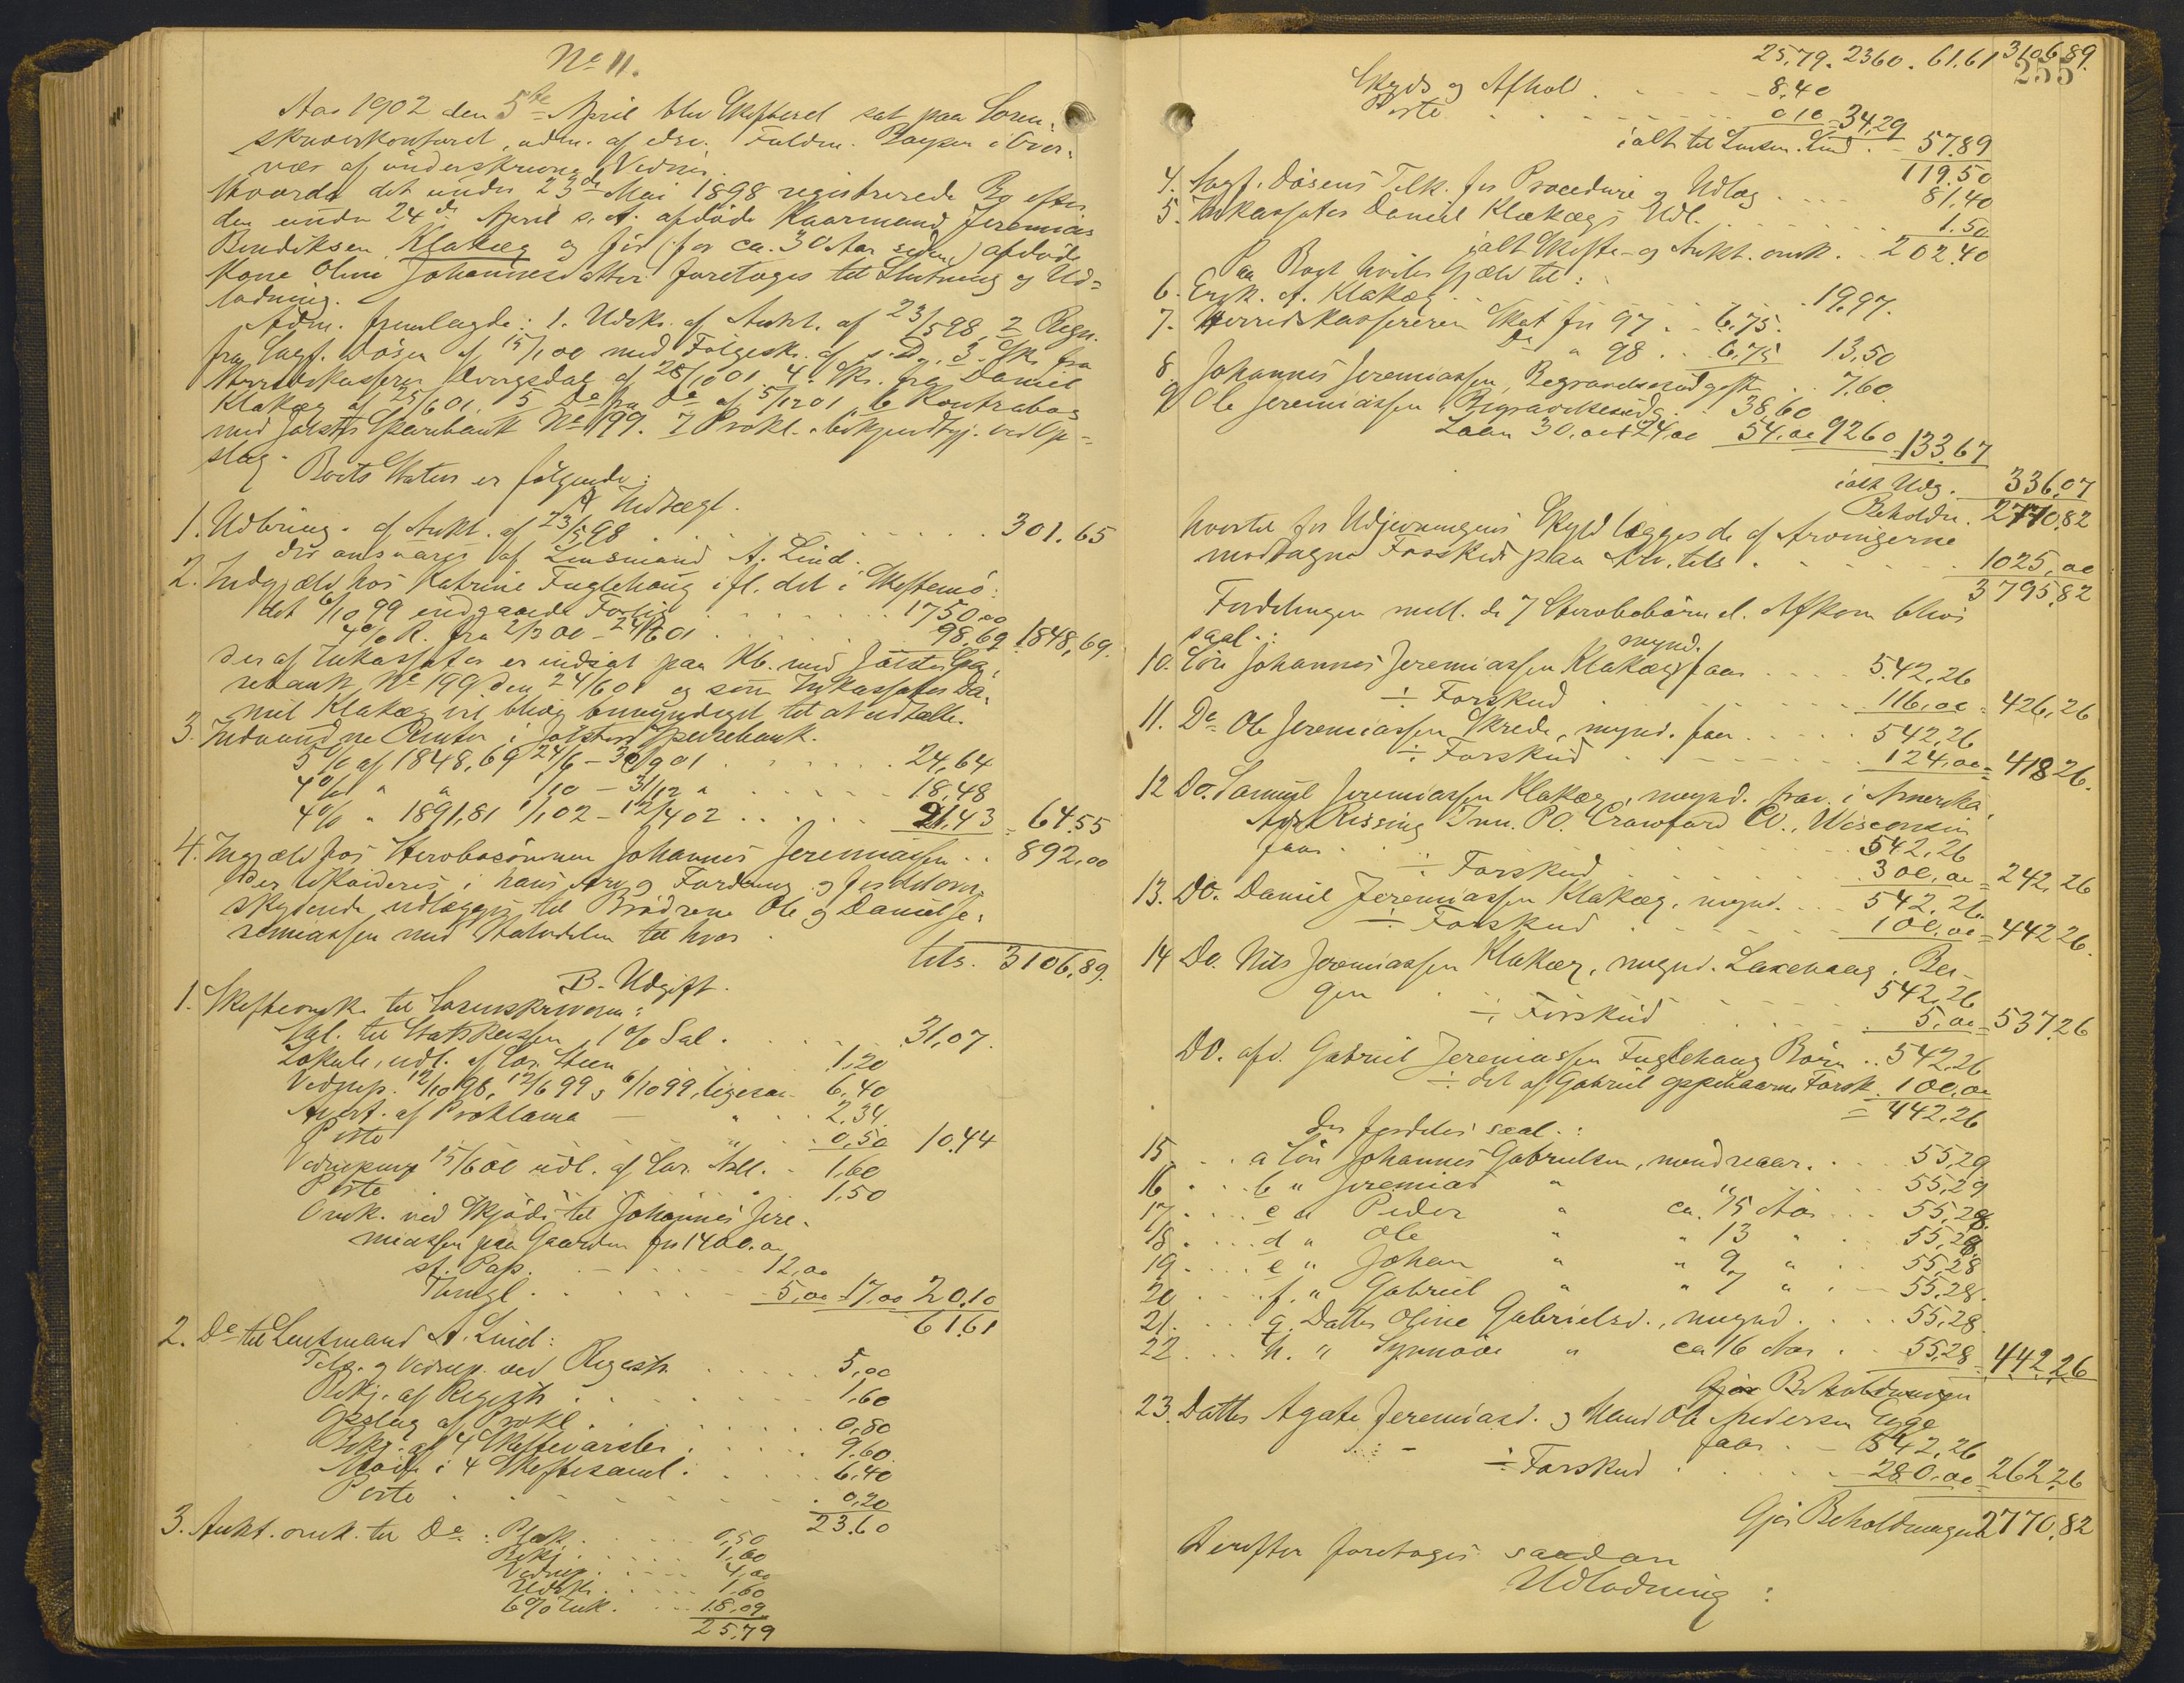 No 11.
Aar 1902 den 5te April blev Skifteret sat paa Soren-
skriverkontoret, adm. af edsv. Fuldm. i Over-
vær af underskrevne Vidner.
Hvorda det under 23de Mai 1898 registrerede Bo efter
den under 24de April s. A. afdøde Kaarmand Jeremias
Bendiksen Klakæg og før (for ca. 30 Aar siden) afdøde
Kone Oline Johannesdatter foretoges til Slutning og Ud-
lodning.
Adm. fremlagde: 1. Udskr. af Aukt. af 23/5 98, 2 Regn.
fra Sagf. Døsen af 15/1 00 med Følgeskr. af s. D., 3. Skr. fra
Herredskasserer af 28/10 01. 4. Skr. fra Daniel
Klakæg af 25/6 01. 5 Do fra Do af 5/12 01, 6 Kontrabog
med Jølster Sparebank No 199. 7 Prokl. bekjendtgj. ved Op-
slag.
Boets Status er følgende:
A Indtægt.
1. Udbring. af Aukt. af 23/5 98 . . . . 301.65
der ansvares af Lensmand A. Lind.
2. Indgjæld hos Katrine Fuglehaug ifl. det i Skiftemø-
det 6/10 99 indgaaede Forlig . . . 1750,00
4% R. fra 2/3 00 - 24/6 01 . . . 98,69 1848,69.
der af Inkassator er indsat paa Kb. med Jølster Spa-
rebank No 199 den 24/6 01 og som Inkassator Da-
niel Klakæg vil blive bemyndiget til at udhæve.
3. Indvundne Renter i Jølster Sparebank.
5% af 1848,69 24/6 - 30/9 01 . . . . 24,64
4% " " 1/10 - 31/12 " . . . . 18,48
4% " 1891,81 1/1 02 - 12/4 02 . . . . 21,43 = 64.55
4. Indgjæld hos Stervbosønnen Johannes Jeremiassen . . 892,00
der likvideres i hans Arv og Fordring og forøvrigt
skyldende udlægges til Brødrene Ole og Daniel Je-
remiassen med Halvdelen til hver.
tils. 3106,89.
B. Udgift.
1. Skifteomk. til Sorenskriveren:
Afl. til Statskassen 1% Sal . . . 31,07.
Lokale, udl. af Sor. Steen 1,20
Vidnep. 12/10 98, 12/6 99 & 6/10 99, ligesaa 6,40
Avert. af Proklama — " . . 2.34
Porto " . . 0,50 10.44
Vidnepenge 15/6 01 udl. af Sor. Nll. . 1,60
Porto " 1,50
Omk. ved Skjøde til Johannes Jere-
miassen paa Gaarden for 1400.00
st. Pap. . . . . 12,00
Tingl . . . . 5,00 = 17,00 20.10
61.61
2. Do til Lensmand A. Lind:
Tilsg. og Vidnep. ved Registr. . . . . 5,00
Bekj. af Registr. . . . . 1,60
Opslag af Prokl. . . . . 0,80
Bekj. af 4 Skiftevarsler . . . . 9,60
Møde i 4 Skiftesaml. . . . . 6,40
Porto . . . . 0,20
23.60
3. Aukt. omk. til Do: Plak. . . . 0,50
Bekj. . . . 1,60
Vidnep. . . . 4,00
Udskr. . . . 1,60
6% Ink. . . . 18,09
25,79
25,79. 2360. 61.61 3106,89.
255
Skyds og Afhold . . . . 8.40
Porto . . . . 0 10 = 34,29
ialt til Lensm. Lind . . 57.89
119,50
4. Sagf. Døsens Tilk. for Procedure og Udlæg . . . . 81,40
5. Inkassator Daniel Klakægs Udl. . . . . 1.50
ialt Skifte- og Aukt. omk. . 202.40
Paa Boet hviler Gjæld til:
6. A. Klakæg . . . . 19.97.
7. Herredskassereren Skat for 97 . . 6,75.
Do " 98 . . 6,75 13,50
8 Johannes Jeremiassen, Begravelsesudgift . . 7.60.
9 Ole Jeremiassen, Begravelsesudg. . 38,60
Laan 30,00 + 24,00 54,00 92 60 133.67
ialt Udg. 336,07
Beholdn. 2770,82
hvortil for Udjevningens Skyld lægges de af Arvingerne
modtagne Forskud paa Arv, tils. . . . . 1025,00
3795,82
Fordelingen mell. de 7 Stervbobørn el. Afkom blir
saal.:
10. Søn Johannes Jeremiassen Klakæg, mynd. faar . . . . 542,26
÷ Forskud . . . . 116,00 = 426,26
11. Do Ole Jeremiassen Skrede, mynd. faar . . . . 542,26
÷ Forskud . . . . 124,00 = 418 26.
12 Do. Samuel Jeremiassen Klakæg, mynd. frav. i Amerika,
Adr. Rissing Inn. P.O. Crawford Co., Wisconsin
faar . . . . 542,26
÷ Forskud . . . . 300,00 = 242,26
13. Do. Daniel Jeremiassen Klakæg, mynd. . . . 542,26
÷ Forskud . . . . 100,00 = 442 26.
14 Do. Nils Jeremiassen Klakæg, mynd. Laxevaag, Ber-
gen . . . . 542,26
÷ Forskud . . . . 5,00 = 537.26
Do. afd. Gabriel Jeremiassen Fuglehaug Børn . . 542,26
÷ det af Gabriel oppebaarne Forsk. 100,00
= 442,26
der fordeles saal.:
15 . . . a Søn Johannes Gabrielsen, mindreaar. . . . 55,29
16 . . . b " Jeremias " " . . . 55,29
17 . . . c " Peder " ca. 15 Aar . . . 55,28.
18 . . . d " Ole " " 13 " . . 55,28
19 . . . e " Johan " " 9 " . . 55,28
20 . . . f. " Gabriel " " 7 " . . 55,28.
21 . . . g. Datter Oline Gabrielsd., mynd. . . . 55,28.
22 . . . h. " Synnøve " ca 16 Aar . . 55,28 = 442,26
Gjør Beholdningen
23. Datter Agate Jeremiasd. og Mand Ole Andersen
faar . . 542,26
÷ Forskud . . . . 280,00 = 262,26
Gjør Beholdningen 2770,82
Derefter foretoges saadan
Udlodning: